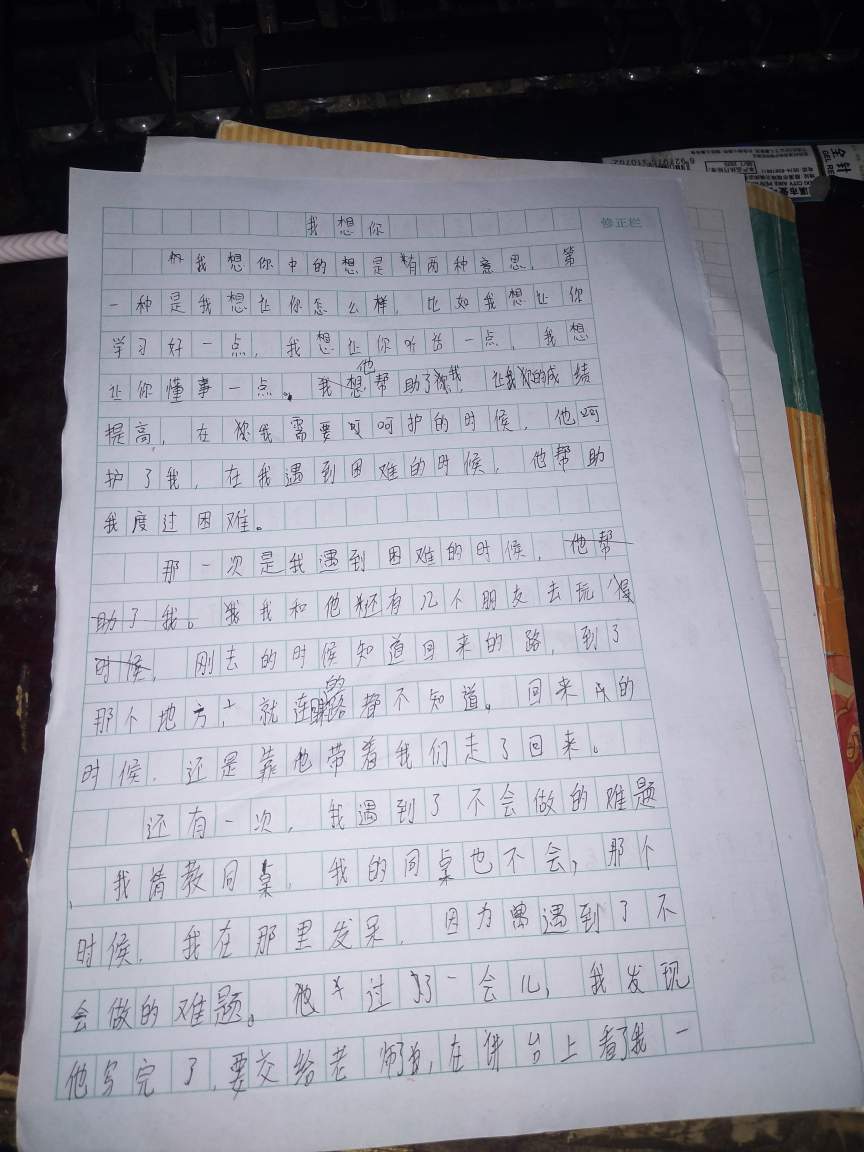 我想你
修正栏
我想你中的想是有两种意思，第
一种是我想让你怎么样，比如我想让你
学习好一点，我想让你听话一点，我想
让你懂事一点。他帮助了我，让我的成绩
提高，在我需要呵护的时候，他呵
护了我，在我遇到困难的时候，他帮助
我度过困难。
那一次是我遇到困难的时候，他帮
助了我。我和他还有几个朋友去玩
时候，刚去的时候知道回来的路，到了
那个地方，就连的路都不知道。回来的
时候，还是靠他带着我们走了回来。
还有一次，我遇到了不会做的难题
，我请教同桌，我的同桌也不会，那个
时候，我在那里发呆，因为遇到了不
会做的难题。过了一会儿，我发现
他写完了，要交给老师，在讲台上看了我一